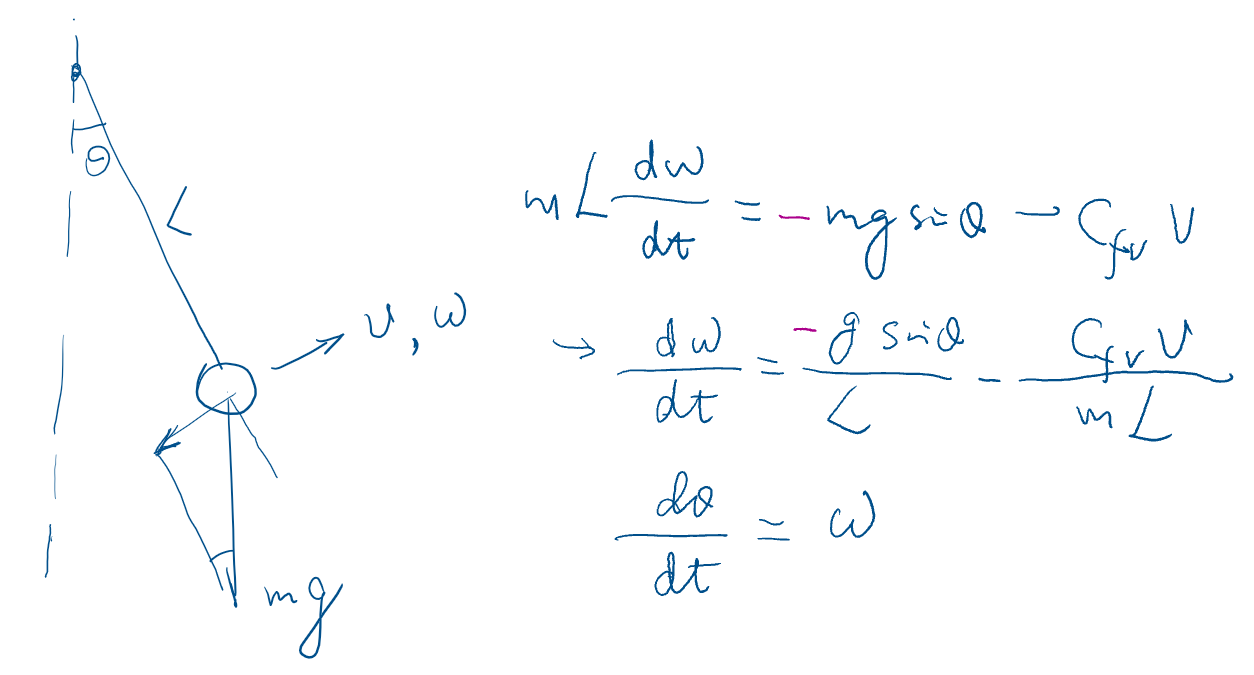 θ
L
v, ω
mg
mL dω/dt = - mg sinθ - C_fv v
→ dω/dt = -g sinθ / L - C_fv v / mL
dθ/dt = ω